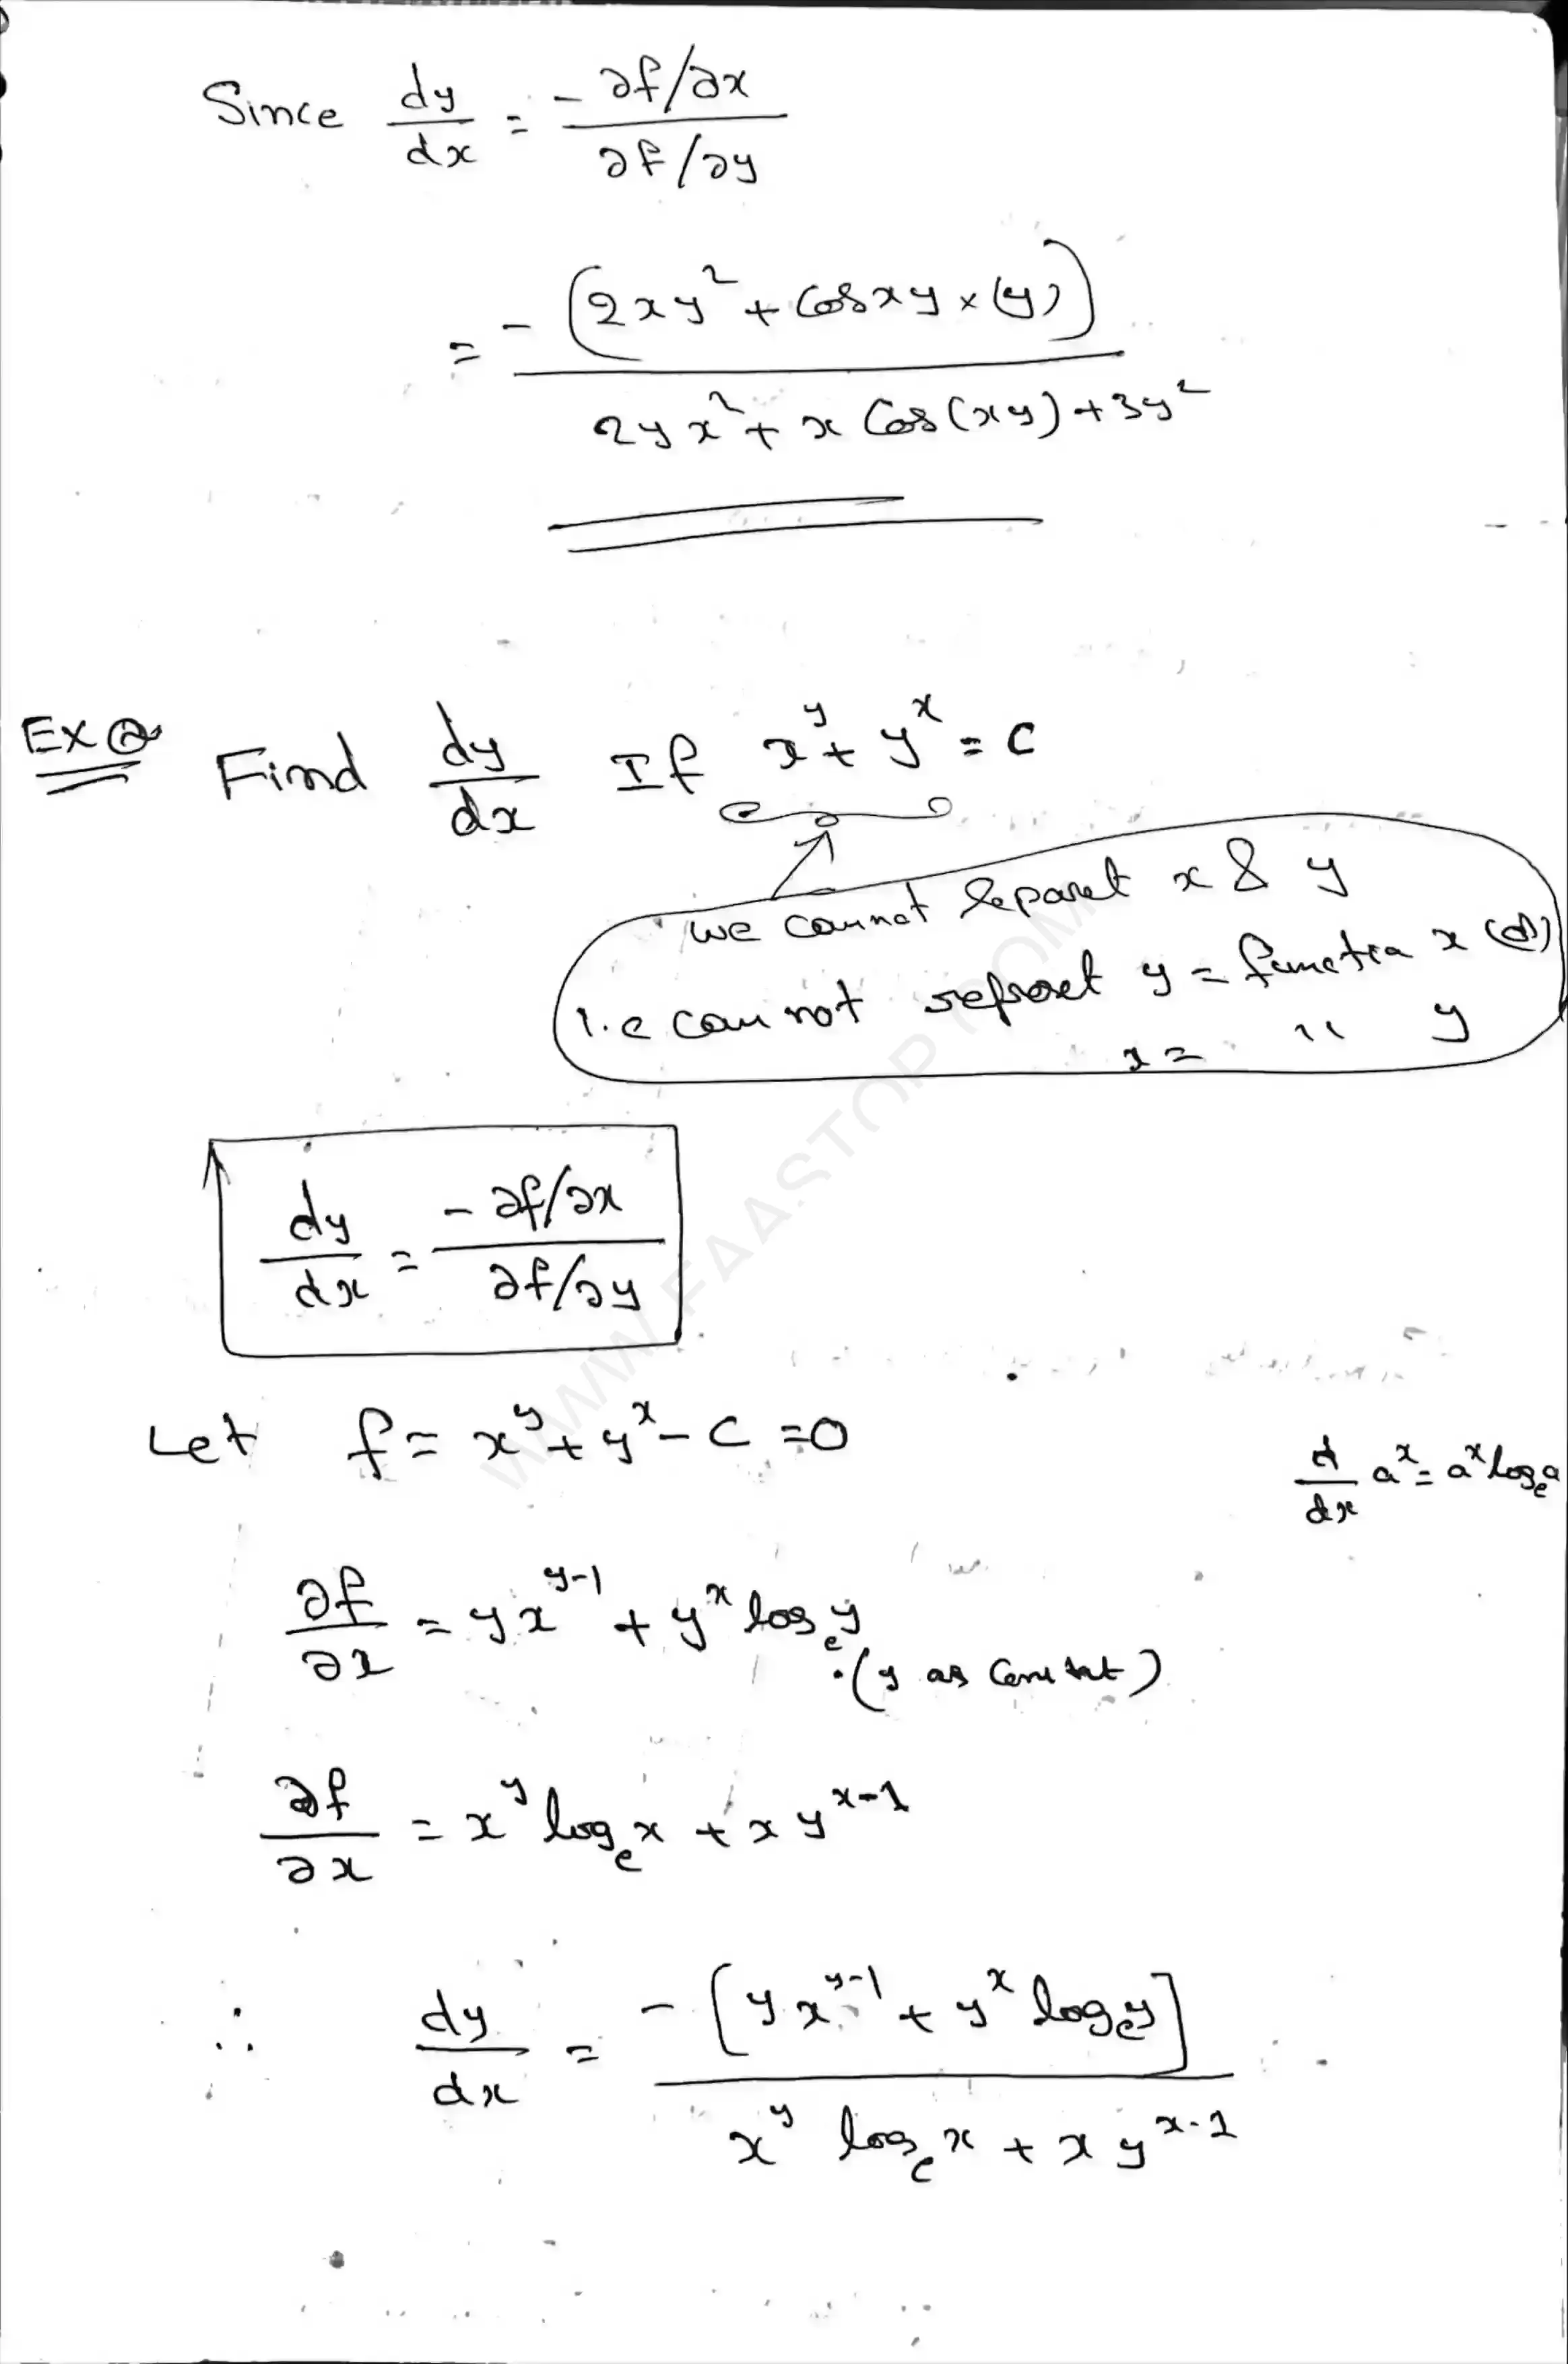 Since dy/dx = - ∂f/∂x / ∂f/∂y
= - (2xy² + Cos xy × (y)) / 2yx² + x Cos(xy) + 3y²
EX ②
Find dy/dx If x^y + y^x = C
we cannot separet x & y
i.e can not represet y = function x (or)
x = " y
dy/dx = - ∂f/∂x / ∂f/∂y
Let f = x^y + y^x - C = 0
d/dx a^x = a^x log_e a
∂f/∂x = y x^(y-1) + y^x log_e y
(y as Constat)
∂f/∂x = x^y log_e x + x y^(x-1)
∴ dy/dx = - [y x^(y-1) + y^x log_e y] / x^y log_e x + x y^(x-1)
WWW.FAASTOP.COM